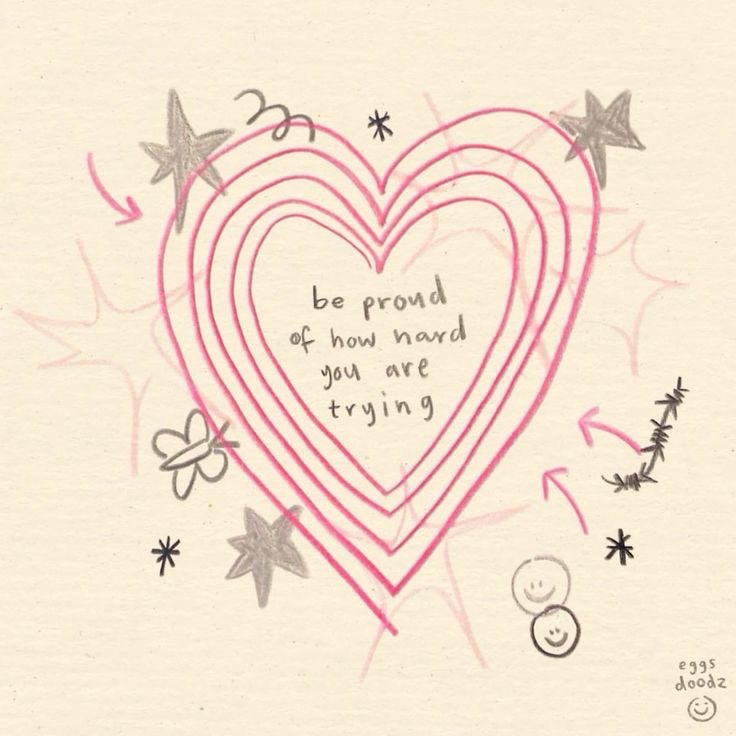 be proud
of how hard
you are
trying
eggs
doodz